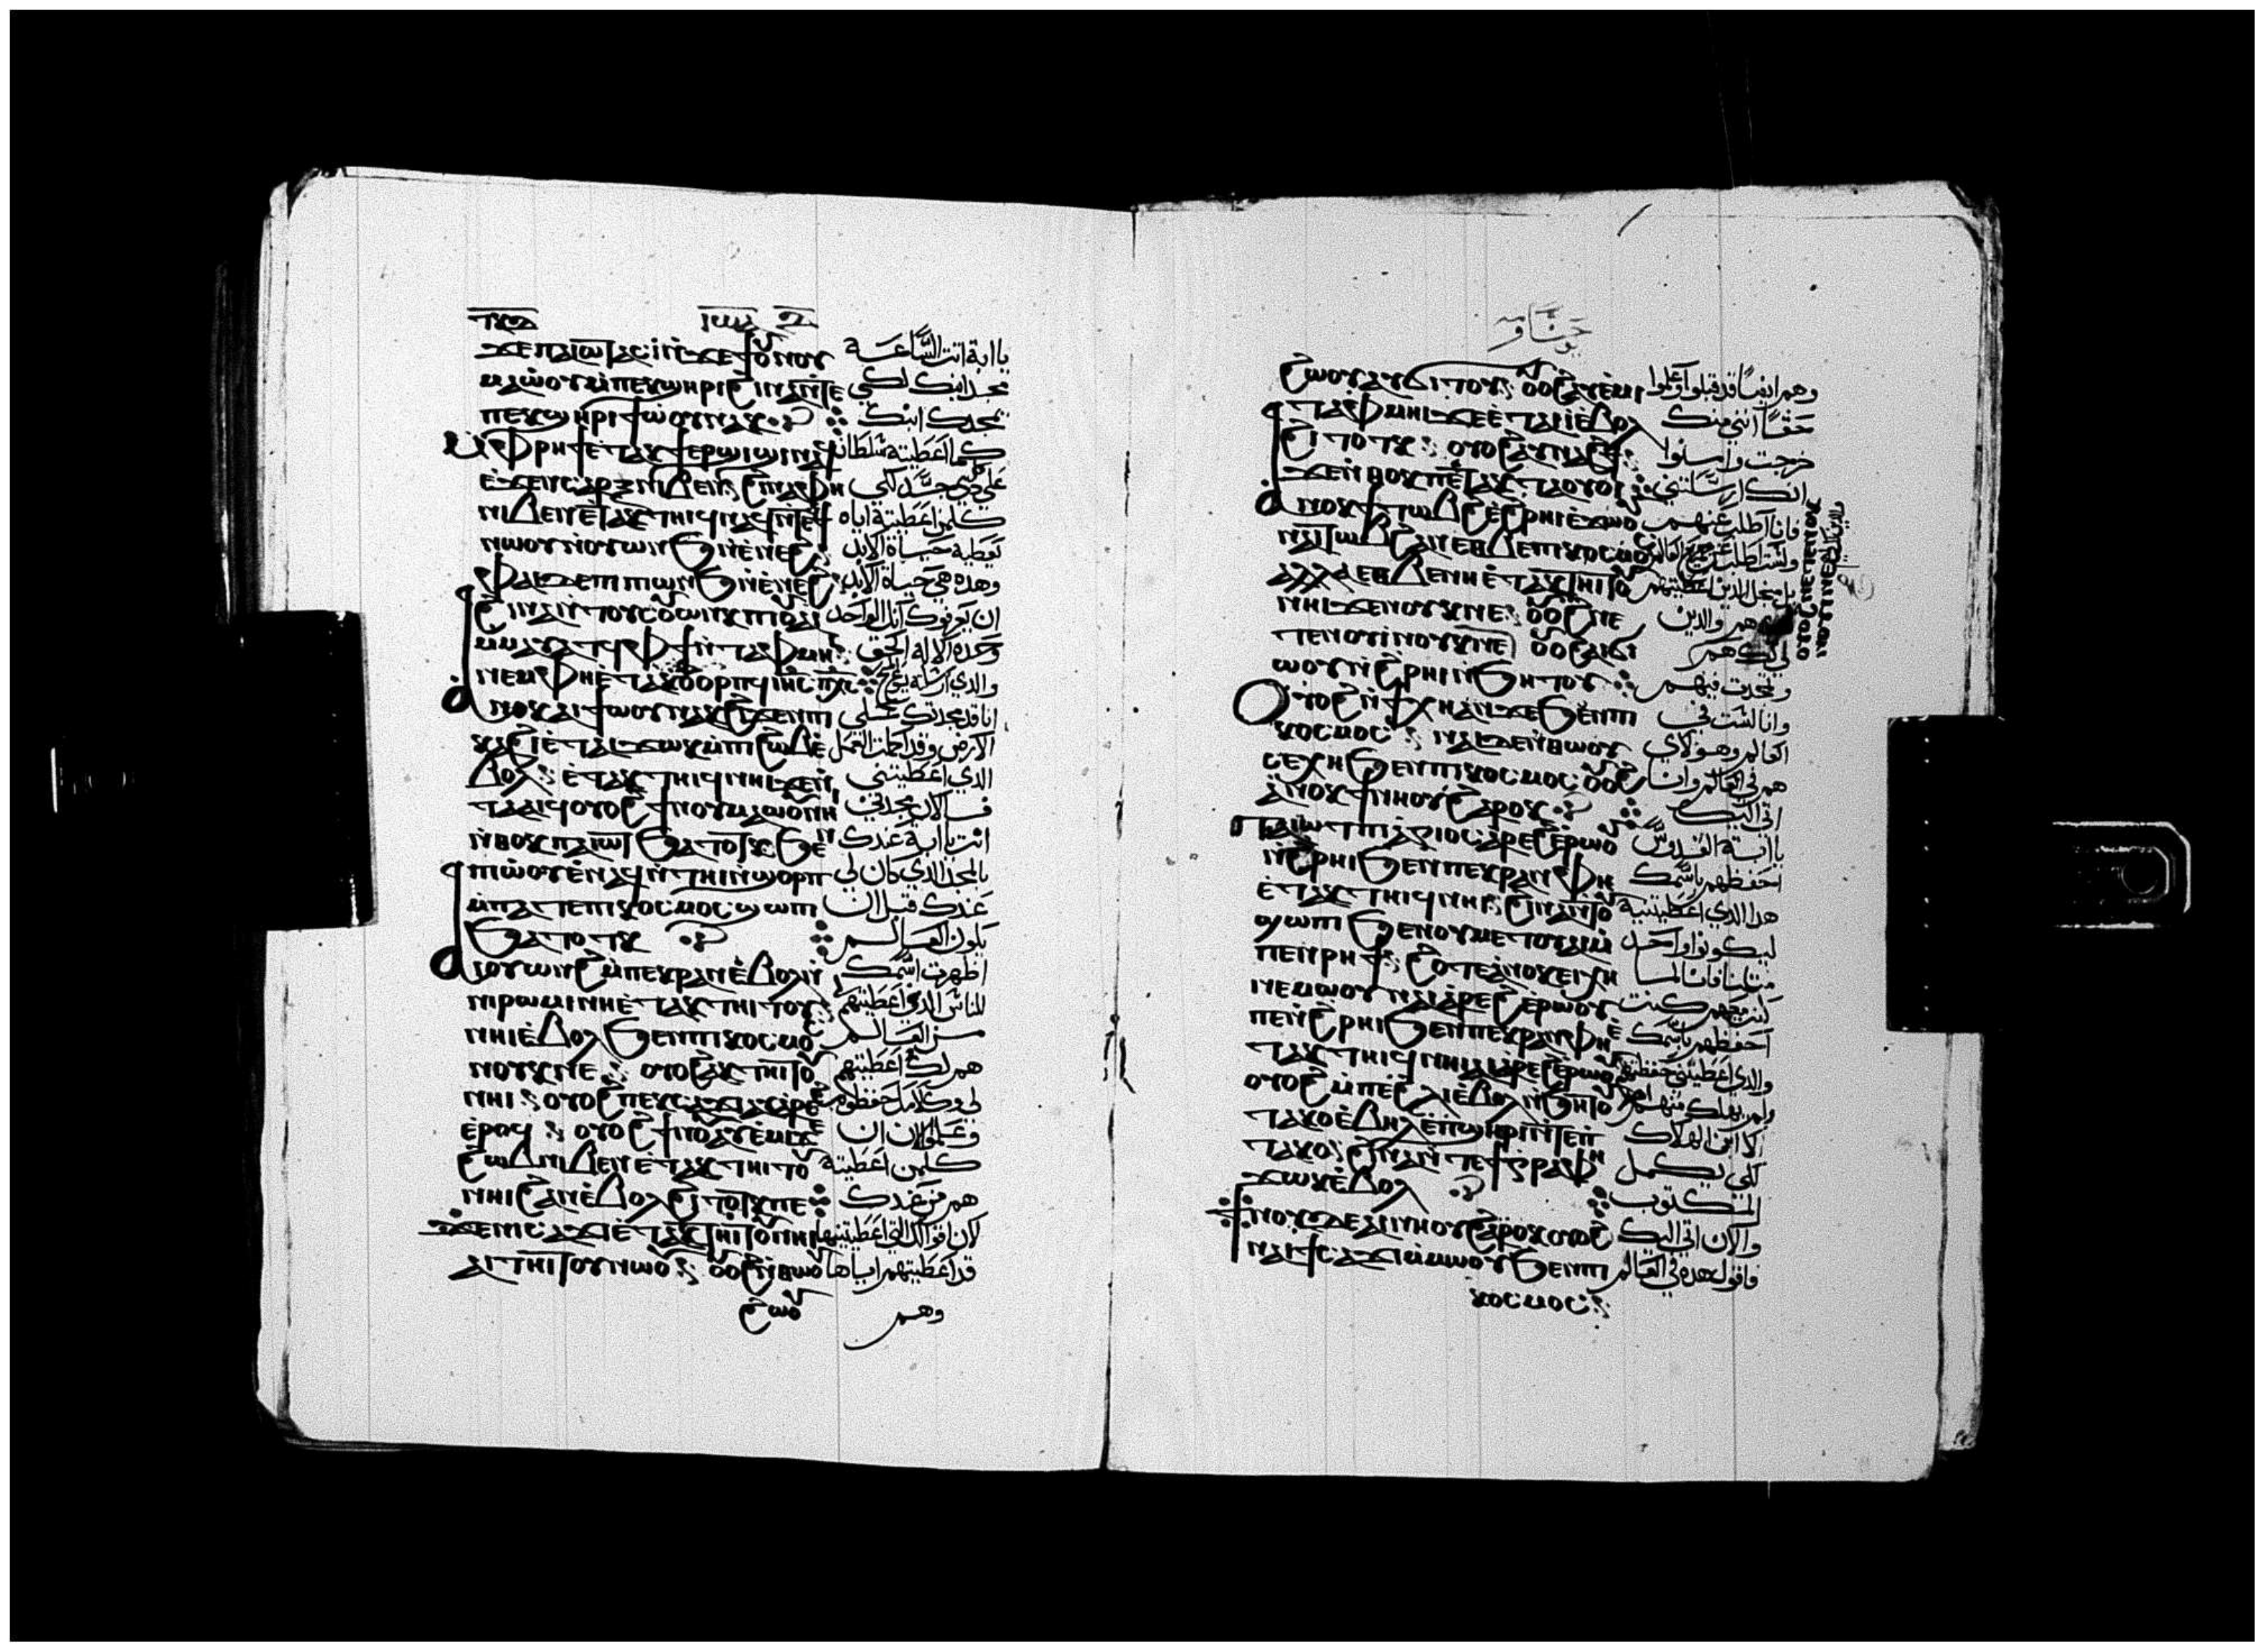 ϫⲉ ⲡⲁⲓⲱⲧ ⲁⲥⲓ ⲛ̀ϫⲉ ϯⲟⲩⲛⲟⲩ
ⲙⲁⲱ̀ⲟⲩ ⲙ̀ⲡⲉⲕϣⲏⲣⲓ ϩⲓⲛⲁ ⲛ̀ⲧⲉ
ⲡⲉⲕϣⲏⲣⲓ ϯⲱ̀ⲟⲩ ⲛⲁⲕ
ⲙ̀ⲫⲣⲏϯ ⲉ̀ⲧⲁⲕϯⲉⲣϣⲓϣⲓ ⲛⲁϥ
ⲉ̀ϫⲉⲛ ⲥⲁⲣⲝ ⲛⲓⲃⲉⲛ ϩⲓⲛⲁ ⲫⲏ
ⲛⲓⲃⲉⲛ ⲉ̀ⲧⲁⲕⲧⲏⲓϥ ⲛⲁϥ ⲛ̀ⲧⲉϥϯ
ⲛⲱⲟⲩ ⲛ̀ⲟⲩⲱⲛϧ ⲛ̀ⲉ̀ⲛⲉϩ
ⲫⲁⲓ ϫⲉ ⲡⲓⲱⲛϧ ⲛ̀ⲉ̀ⲛⲉϩ
ϩⲓⲛⲁ ⲛ̀ⲧⲟⲩⲥⲟⲩⲱⲛⲕ ⲡⲓⲟⲩⲁⲓ
ⲙ̀ⲙⲁⲩⲁⲧϥ ⲫϯ ⲛ̀ⲧⲁⲫⲙⲏⲓ
ⲛⲉⲙ ⲫⲏ ⲉ̀ⲧⲁⲕⲟⲩⲟⲣⲡϥ ⲓⲏⲥ ⲡⲭⲥ
ⲁ̀ⲛⲟⲕ ⲁⲓϯⲱⲟⲩ ⲛⲁⲕ ϩⲓϫⲉⲛ ⲡⲓ
ⲕⲁϩⲓ ⲉ̀ⲧⲁⲓϫⲱⲕ ⲙ̀ⲡⲓϩⲱⲃ ⲉ̀
ⲃⲟⲗ ⲉ̀ⲧⲁⲕⲧⲏⲓϥ ⲛⲏⲓ ϫⲉ ⲛ̀
ⲧⲁⲁⲓϥ ⲟⲩⲟϩ ϯⲛⲟⲩ ⲙⲁⲱⲟⲩ ⲛⲏⲓ
ⲛ̀ⲑⲟⲕ ⲡⲁⲓⲱⲧ ϧⲁⲧⲟⲧⲕ ϧⲉⲛ
ⲡⲓⲱ̀ⲟⲩ ⲉ̀ⲛⲁϥⲛ̀ⲧⲏⲓ ⲛ̀ϣⲟⲣⲡ
ⲙ̀ⲡⲁⲧⲉ ⲡⲓⲕⲟⲥⲙⲟⲥ ϣⲱⲡⲓ
ϧⲁⲧⲟⲧⲕ
ⲁⲓⲟⲩⲱⲛϩ ⲙ̀ⲡⲉⲕⲣⲁⲛ ⲉ̀ⲃⲟⲗ ⲛ̀
ⲛⲓⲣⲱⲙⲓ ⲛⲏ ⲉ̀ⲧⲁⲕⲧⲏⲓⲧⲟⲩ
ⲛⲏⲓ ⲉ̀ⲃⲟⲗ ϧⲉⲛ ⲡⲓⲕⲟⲥⲙⲟⲥ
ⲛⲟⲩⲕ ⲛⲉ ⲟⲩⲟϩ ⲁⲕⲧⲏⲓⲧⲟⲩ
ⲛⲏⲓ ⲟⲩⲟϩ ⲡⲉⲕⲥⲁϫⲓ ⲁⲩⲁⲣⲉϩ
ⲉ̀ⲣⲟϥ ⲟⲩⲟϩ ϯⲛⲟⲩ ⲁⲩⲉ̀ⲙⲓ ϫⲉ
ϩⲱⲃ ⲛⲓⲃⲉⲛ ⲉ̀ⲧⲁⲕⲧⲏⲓⲧⲟⲩ
ⲛⲏⲓ ϩⲁⲛⲉ̀ⲃⲟⲗ ϩⲓⲧⲟⲧⲕ ⲡⲉ
ϫⲉ ⲛⲓⲥⲁϫⲓ ⲉ̀ⲧⲁⲕⲧⲏⲓⲧⲟⲩ ⲛⲏⲓ
ⲁⲓⲧⲏⲓⲧⲟⲩ ⲛⲱⲟⲩ ⲟⲩⲟϩ ⲛ̀ⲑⲱⲟⲩ
ϩⲱⲟⲩ
يا ابة اتت الساعة
مجد ابنك لكي
يمجدك ابنك
كما اعطيته سلطان
على كل جسد لكي
كلمن اعطيته اياه
يعطيه حياة الابد
وهده هي حياة الابد
ان يعرفوك انك الواحد
وحده الاله الحق
والدي ارسلته يسوع
انا قد مجدتك على
الارض وقد اكملت العمل
الدي اعطيتني
فالان مجدني
انت يا ابة عندك
بالمجد الدي كان لي
عندك قبل ان
يكون العالم
اظهرت اسمك
للناس الدي اعطيتهم
من العالم
هم لك اعطيتهم
لي وكلامك حفظوه
وعلموا الان ان
كلمن اعطيته
هم من عندك
لان اقوالك التي اعطيتنيها
قد اعطيتهم اياها
وهم
ϩⲱⲟⲩ ⲁⲩϭⲓⲧⲟⲩ ⲟⲩⲟϩ ⲁⲩⲉ̀ⲙⲓ
ⲧⲁⲫⲙⲏⲓ ϫⲉ ⲉ̀ⲧⲁⲓⲓ̀ ⲉ̀ⲃⲟⲗ
ϩⲓⲧⲟⲧⲕ ⲟⲩⲟϩ ⲁⲩⲛⲁϩϯ
ϫⲉ ⲛ̀ⲑⲟⲕ ⲡⲉⲧⲁⲕⲧⲁⲟⲩⲟⲓ
ⲁ̀ⲛⲟⲕ ϯⲧⲱⲃϩ ⲉ̀ϩⲣⲏⲓ ⲉ̀ϫⲱⲟⲩ
ⲛⲁⲓⲧⲱⲃϩ ⲁⲛ ⲉⲑⲃⲉ ⲡⲓⲕⲟⲥⲙⲟⲥ
ⲁⲗⲗⲁ ⲉⲑⲃⲉ ⲛⲏ ⲉ̀ⲧⲁⲕⲧⲏⲓⲧⲟⲩ
ⲛⲏⲓ ϫⲉ ⲛⲟⲩⲕ ⲛⲉ ⲟⲩⲟϩ ⲛⲉ
ⲧⲉⲛⲟⲩⲓ̀ ⲛⲟⲩⲕ ⲛⲉ ⲟⲩⲟϩ ⲁⲓϭⲓ
ⲱⲟⲩ ⲛ̀ϩⲣⲏⲓ ⲛ̀ϧⲏⲧⲟⲩ
ⲟⲩⲟϩ ⲛ̀ϯⲭⲏ ⲁⲛ ϫⲉ ϧⲉⲛ ⲡⲓ
ⲕⲟⲥⲙⲟⲥ ⲛⲁⲓ ϫⲉ ⲛ̀ⲑⲱⲟⲩ
ⲥⲉⲭⲏ ϧⲉⲛ ⲡⲓⲕⲟⲥⲙⲟⲥ ⲟⲩⲟϩ
ⲁ̀ⲛⲟⲕ ϯⲛⲏⲟⲩ ϩⲁⲣⲟⲕ
ⲡⲁⲓⲱⲧ ⲡⲓⲁ̀ⲅⲓⲟⲥ ⲁ̀ⲣⲉϩ ⲉ̀ⲣⲱⲟⲩ
ⲛ̀ϩⲣⲏⲓ ϧⲉⲛ ⲡⲉⲕⲣⲁⲛ ⲫⲏ
ⲉ̀ⲧⲁⲕⲧⲏⲓϥ ⲛⲏⲓ ϩⲓⲛⲁ ⲛ̀ⲧⲟⲩ
ϣⲱⲡⲓ ϧⲉⲛ ⲟⲩⲙⲉⲧⲟⲩⲁⲓ ⲙ̀
ⲡⲉⲛⲣⲏϯ ϩⲟⲧⲉ ⲁ̀ⲛⲟⲕ ⲉⲓⲭⲏ
ⲛⲉⲙⲱⲟⲩ ⲛⲁⲓⲁ̀ⲣⲉϩ ⲉ̀ⲣⲱⲟⲩ
ⲡⲉ ⲛ̀ϩⲣⲏⲓ ϧⲉⲛ ⲡⲉⲕⲣⲁⲛ ⲫⲏ ⲉ̀
ⲧⲁⲕⲧⲏⲓϥ ⲛⲏⲓ ⲁⲓⲁ̀ⲣⲉϩ ⲉ̀ⲣⲱⲟⲩ
ⲟⲩⲟϩ ⲙ̀ⲡⲉ ϩⲗⲓ ⲉ̀ⲃⲟⲗ ⲛ̀ϧⲏⲧⲟⲩ
ⲧⲁⲕⲟ ⲉ̀ⲃⲏⲗ ⲉ̀ⲡϣⲏⲣⲓ ⲛ̀ⲧⲉ ⲡ
ⲧⲁⲕⲟ ϩⲓⲛⲁ ⲛ̀ⲧⲉ ϯⲅⲣⲁⲫⲏ
ϫⲱⲕ ⲉ̀ⲃⲟⲗ
ϯⲛⲟⲩ ⲇⲉ ⲁⲓⲛⲏⲟⲩ ϩⲁⲣⲟⲕ ⲟⲩⲟϩ
ⲛⲁⲓ ϯⲥⲁϫⲓ ⲙ̀ⲙⲱⲟⲩ ϧⲉⲛ ⲡⲓ
ⲕⲟⲥⲙⲟⲥ
وهم ايضا قد قبلوا وعلموا
حقا انني منك
خرجت وامنوا
انك ارسلتني
فانا اطلب عنهم
بل من اجل الدين اعطيتهم
هم والدين
لي لك هم
وتمجدت فيهم
وانا لست في
العالم وهولاي
هم في العالم وانا
اتي اليك
يا ابة القدوس
احفظهم باسمك
هدا الدي اعطيتنيه
ليكونوا واحد
مثلنا فانا لما
كنت معهم كنت
احفظهم باسمك
والدي اعطيتني حفظتهم
ولم يهلك منهم احد
الا ابن الهلاك
لكي يكمل
المكتوب
والان اتي اليك
فاقول هده في العالم